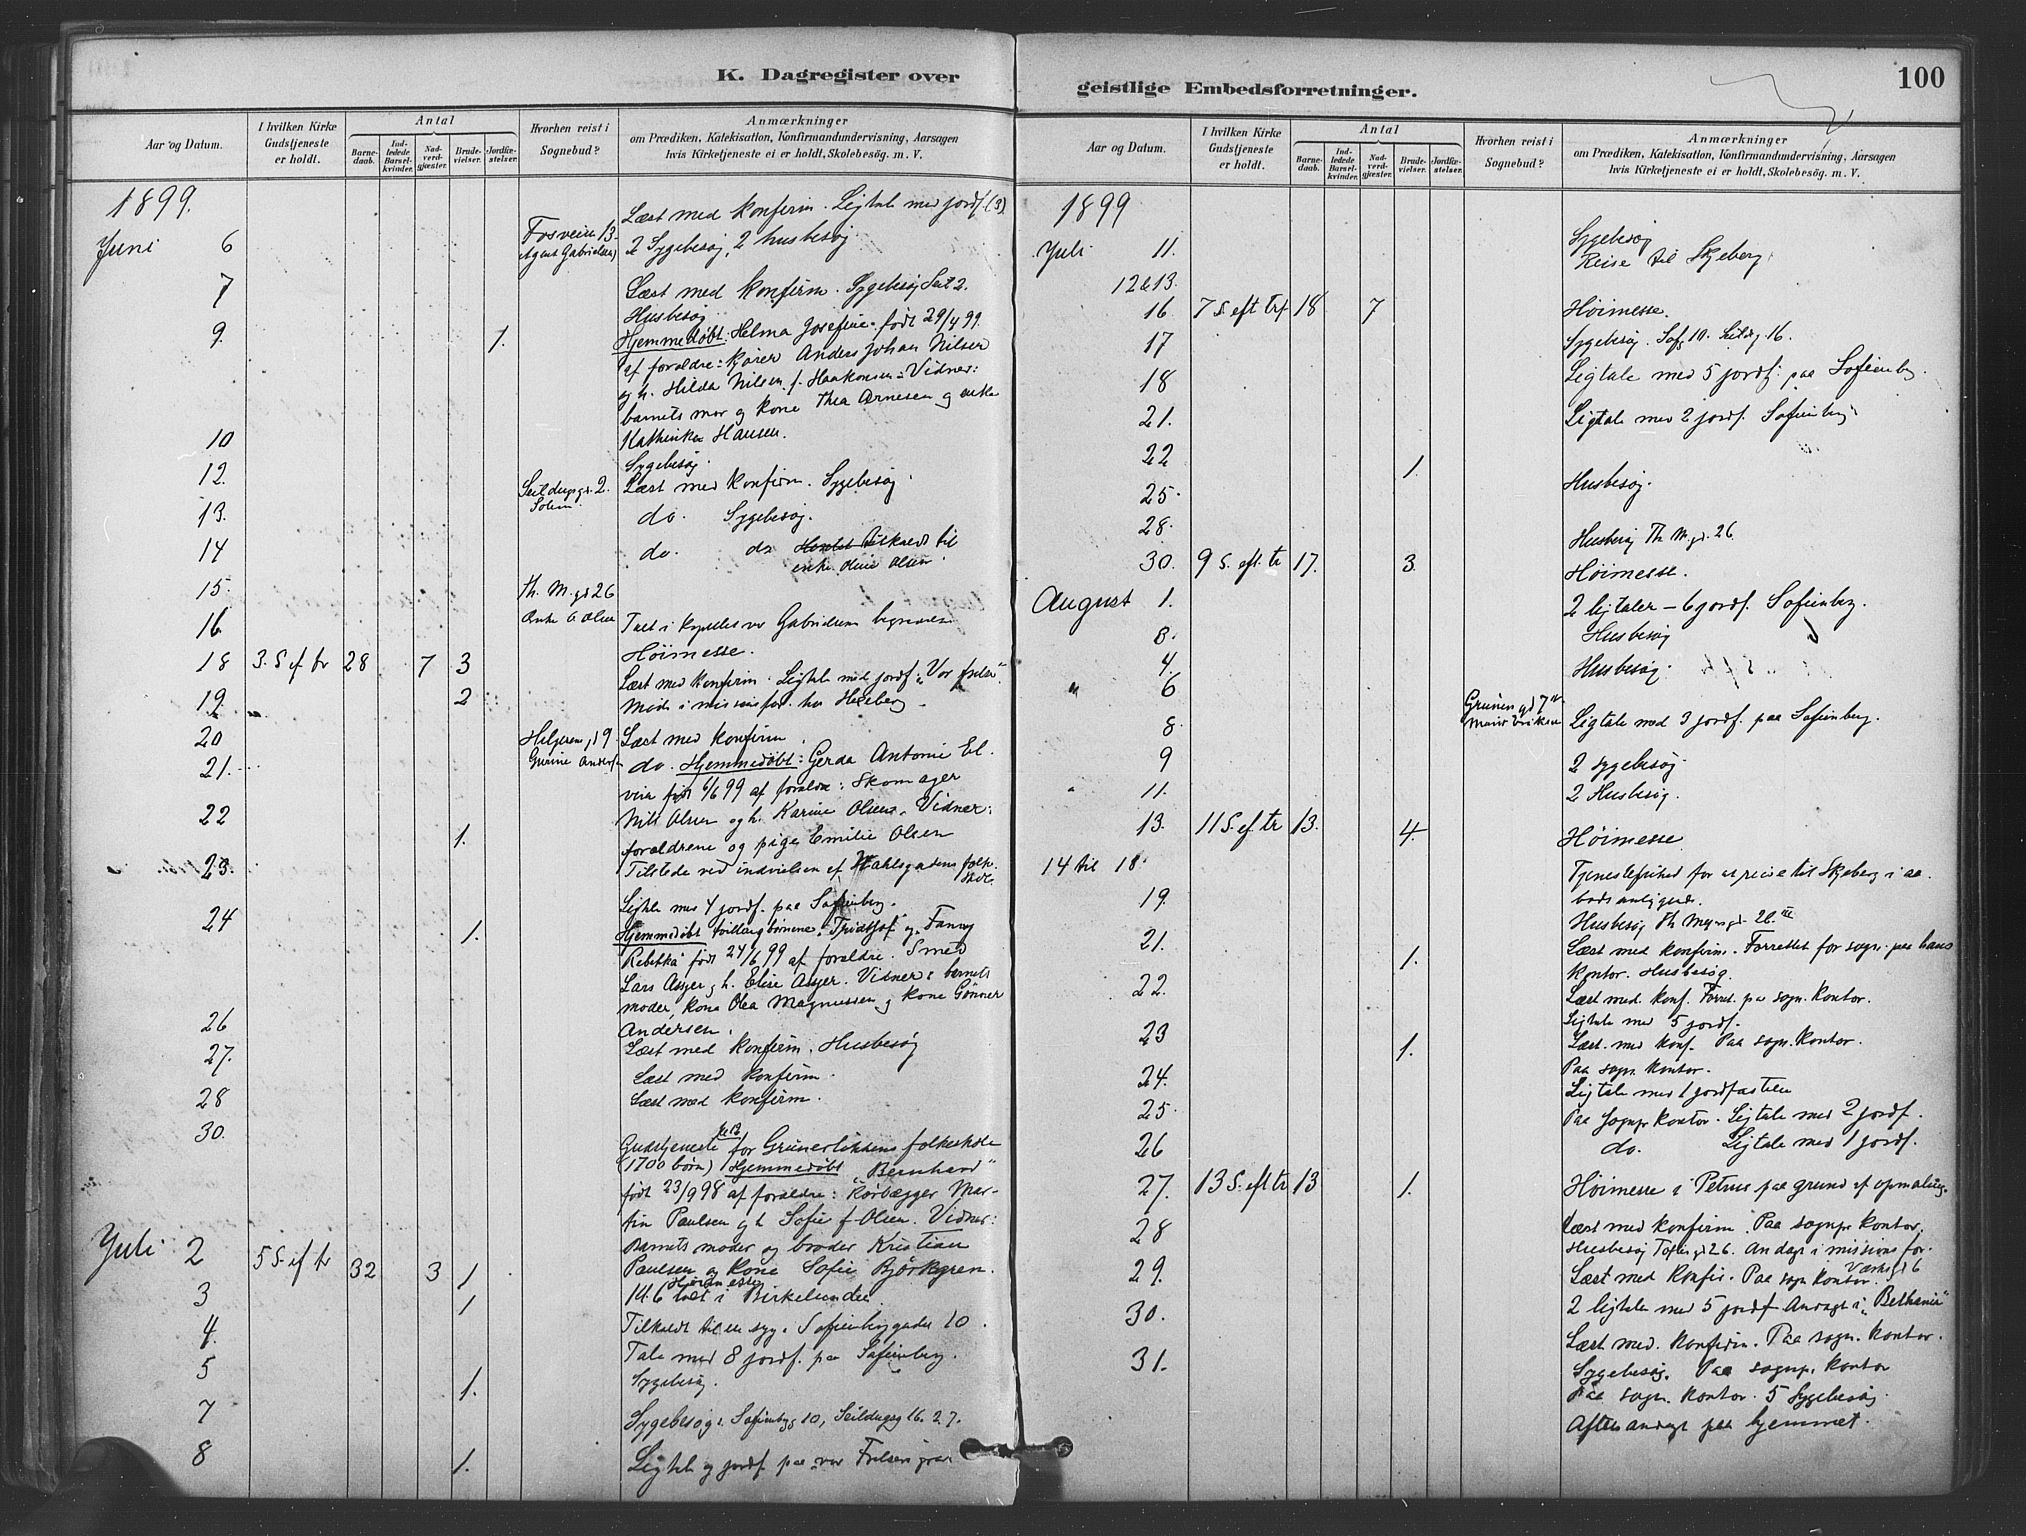 K. Dagregister over
geistlige Embedsforretninger.
100
Aar og Datum.
I hvilken Kirke Gudstjeneste er holdt.
Antal
Barnedaab.
Indledede Barselkvinder.
Nadverdgjæster.
Brudevielser.
Jordfæstelser.
Hvorhen reist i Sognebud?
Anmærkninger
om Prædiken, Katekisation, Konfirmandundervisning, Aarsagen
hvis Kirketjeneste ei er holdt, Skolebesøg. m. V.
1899.
Læst med konfirm. Ligtale med jordf. (3)
Juni 6 Fosveien 13. 2 Sygebesøg, 2 husbesøg
Agent Gabrielsen
7 Læst med konfirm. Sygebesøg Seil 2.
Husbesøg
9. 1. Hjemmedøbt: Helma Josefine født 29/4 99.
af foraldre: kjører Anders Johan Nilsen
og h. Hilda Nilsen f. Haakonsen. Vidner:
barnets mor og kone Thea Arnesen og enke
Kathinka Hansen.
10 Sygebesøg.
12. Seildugsgd. 2. Læst med konfirm. Sygebesøg.
13. do. Sygebesøg.
14 do. do tilkaldt til
enke Oline Olsen
15. Th. M. gd 26
16 Talt i kapellet ved Gabrielsens begravelse
18 3. S. ef tr 28 7 3 Høimesse.
19. 2 Læst med konfirm. Ligtale med jordf. "Vor frelser".
Møde i missionsfor. hos
20 Helgesens gd 9. Læst med konfirm.
21. do. Hjemmedøbt: Gerda Antonie El-
vira født 6/6 99 af foraldre: Skomager
22 1. Nils Olsen og h. Karine Olsen. Vidner:
foraldrene og pige Emilie Olsen
23. Tilstede ved indvielsen af Dahlsgadens folke-
skole.
24 1. Ligtale med 4 jordf. paa Sofienberg.
Hjemmedøbt tvillingbørnene "Fridtjof" og "Fanny
Rebekka" født 24/6 99 af foraldre. Smed
Lars Asyer og h. Elise Asyer. Vidner: barnets
moder, kone Olea Magnussen og kone Gönner
Andersen.
26 Læst med konfirm. Husbesøg
27. Læst med konfirm.
28 Læst med konfirm.
30. Gudstjeneste kl 12 for Grünerløkkens folkeskole
(1700 børn) Hjemmedøbt "Bernhard"
født 23/9 98 af foraldre: Rørlægger Mar-
tin Paulsen og h Sofie f. Olsen. Vidner:
Barnets moder og broder Kristian
Paulsen og kone Sofie Björkgren.
Juli 2 5 S. ef tr 32 3 1 Høimesse
Kl. 6 talt i Birkelunden
3 1 Tilkaldt til en syg i Sofienberggaden 10.
4. Tale med 8 jordf. paa Sofienberg.
5 1. Sygebesøg.
7 Sygebesøg: Sofienbgg 10, Seildugsg 16. 27.
8 1. Ligtale og jordf. paa vor Frelsers grav
Aar og Datum.
I hvilken Kirke Gudstjeneste er holdt.
Antal
Barnedaab.
Indledede Barselkvinder.
Nadverdgjæster.
Brudevielser.
Jordfæstelser.
Hvorhen reist i Sognebud?
Anmærkninger
om Prædiken, Katekisation, Konfirmandundervisning, Aarsagen
hvis Kirketjeneste ei er holdt, Skolebesøg. m. V.
1899
Juli 11. Sygebesøg
12 & 13. Reise til Skjeberg.
16 7 S. eft trf 18 7 Høimesse.
17 Sygebesøg. Sofg 10. Seildg. 16.
18 Ligtale med 5 jordf. paa Sofienbg.
21. Ligtale med 2 jordf. Sofienberg
22 1.
25. Husbesøg.
28. Husbesøg Th M. gd. 26.
30. 9 S. eft. tr 17. 3 Høimesse.
August 1. 2 ligtaler – 6 jordf. Sofienbg.
3. Husbesøg
4. Husbesøg.
" 6
8. Grünersgd 7 Ligtale med 3 jordf. paa Sofienberg.
9 2 sygebesøg
" 11. 2 Husbesøg.
13. 11 S. ef tr 13. 4. Høimesse
14 til 18. Tjenestefrihed for at reise til Skjeberg i aa-
19. Husbesøg Th Meyersgd. 26.
21. 1. Læst med konfirm. Forrettet for sogn. paa hans
kontor. Husbesøg.
22. Læst med. konf. Forret. paa sogn. kontor.
Ligtale med 5 jordf.
23 1. Læst. med konf. Paa sogn. kontor.
24. Paa sogn. kontor.
Ligtale med 1 jordfæstelse
25. Paa sognpr kontor. Ligtale med 2 jordf.
26 do. Ligtale med 1 jordf.
27. 13 S. eft tr 13 1. Høimesse i Petrus paa grund af opmaling.
28 Læst med konfirm. Paa sognpr kontor.
Husbesøg Toftesgd 26. Andagt i missionsfor.
29. Læst med Konfir. Paa sogn kontor.
2 ligtale med 5 jordf. Andagt i "Bethania"
30. Læst med. konfirm. Paa sogn. kontor.
31. Sygebesøg. Paa sognpr. kontor
Paa sogn. kontor. 5 Sygebesøg.
Aftenandagt paa hjemmet.